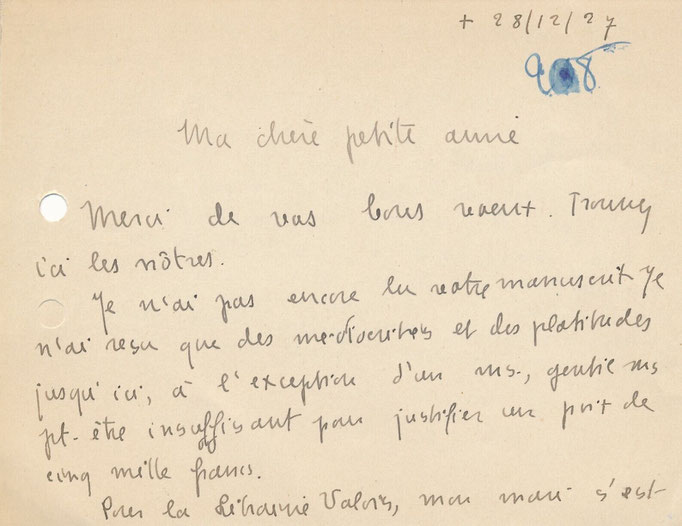 + 28/12/27
908
Ma chère petite amie
Merci de vos bons voeux. Trouvez
ici les nôtres.
Je n'ai pas encore lu votre manuscrit. Je
n'ai reçu que des médiocrités et des platitudes
jusqu'ici, à l'exception d'un ms., gentil ms
pt-être insuffisant pour justifier un prix de
cinq mille francs.
Pour la Librairie Valois, mon mari s'est